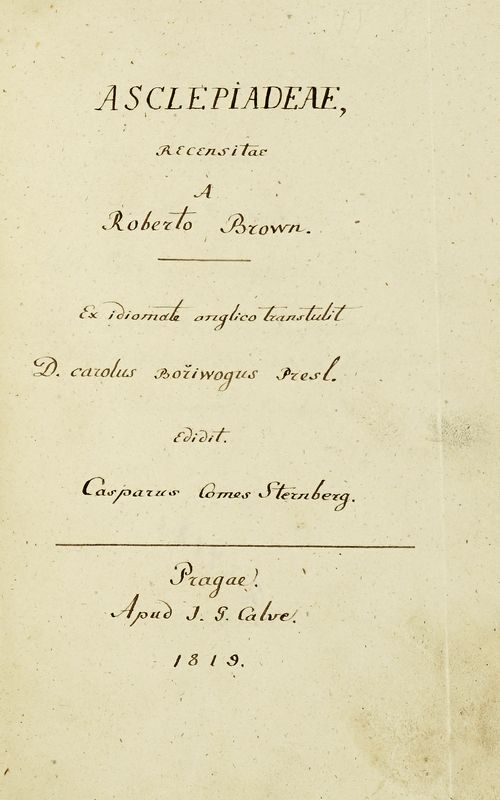 ASCLEPIADEAE,
Recensitae
A
Roberto Brown.
Ex idiomate anglico transtulit
D. carolus Bořiwogus Presl.
Edidit.
Casparus Comes Sternberg.
Pragae.
Apud J. G. Calve.
1819.